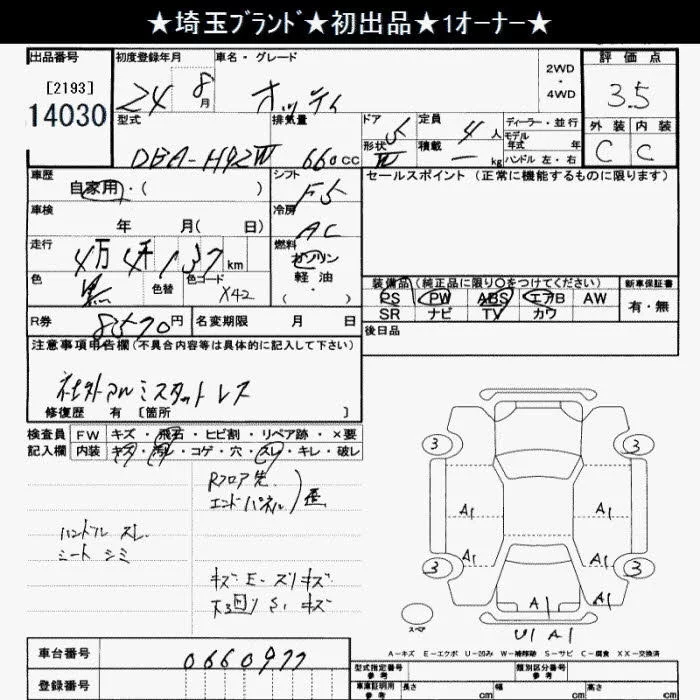 ★埼玉ﾌﾞﾗﾝﾄﾞ★初出品★1オーナー★
出品番号 初度登録年月 車名・グレード 評価点
[2193] 24 8月 オッティ 2WD・4WD 3.5
14030
型式 排気量 ドア 定員 ディーラー・並行 外装 内装
DBA-H92W 660cc 5 4人 モデル年式 年 C C
形状 W 積載 ―kg ハンドル 左・右
車歴 シフト セールスポイント (正常に機能するものに限ります)
自家用・( ) F5
車検 冷房
年 月( 日) AC
走行 燃料
4万4千137km ガソリン
色 色替 色コード 軽油・
黒 X42 ( )
装備品(純正品に限り○をつけてください) 新車保証書
PS PW ABS エアB AW 有・無
SR ナビ TV カワ
R券 8570円 名変期限 月 日 後日品
注意事項申告欄(不具合内容等は具体的に記入して下さい)
社外アルミスタットレス
修復歴 有 [箇所 ]
検査員 FW キズ・飛石・ヒビ割・リペア跡・×要
記入欄 内装 キズ・汚レ・コゲ・穴・スレ・キレ・破レ
Rフロア先
エンドパネル)歪
ハンドル スレ
シート シミ
キズ E・ズリキズ
下回り S、キズ
3 3
A1 A1
A1 A1
3 3
A1 A1
スペア
U1 A1
A-キズ E-エクボ U-凹み W-補修跡 S-サビ C-腐食 XX-交換済
車台番号 0660977
型式指定番号 参考 類別区分番号 参考
登録番号
車庫証明用 参考 長さ cm 幅 cm 高さ cm